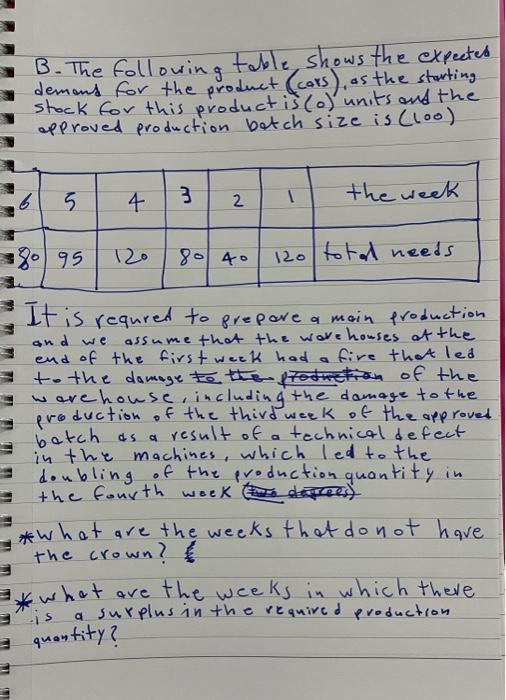 B- The following table shows the expected
demand for the product (cars), as the starting
stock for this product is (0) units and the
approved production batch size is (100)
6 5 4 3 2 1 the week
80 95 120 80 40 120 total needs
It is requred to prepare a main production
and we assume that the warehouses at the
end of the first week had a fire that led
to the damage to the production of the
warehouse, including the damage to the
production of the third week of the approved
batch as a result of a technical defect
in the machines, which led to the
doubling of the production quantity in
the fourth week (two degrees)
*what are the weeks that do not have
the crown?
*what are the weeks in which there
is a surplus in the required production
quantity?